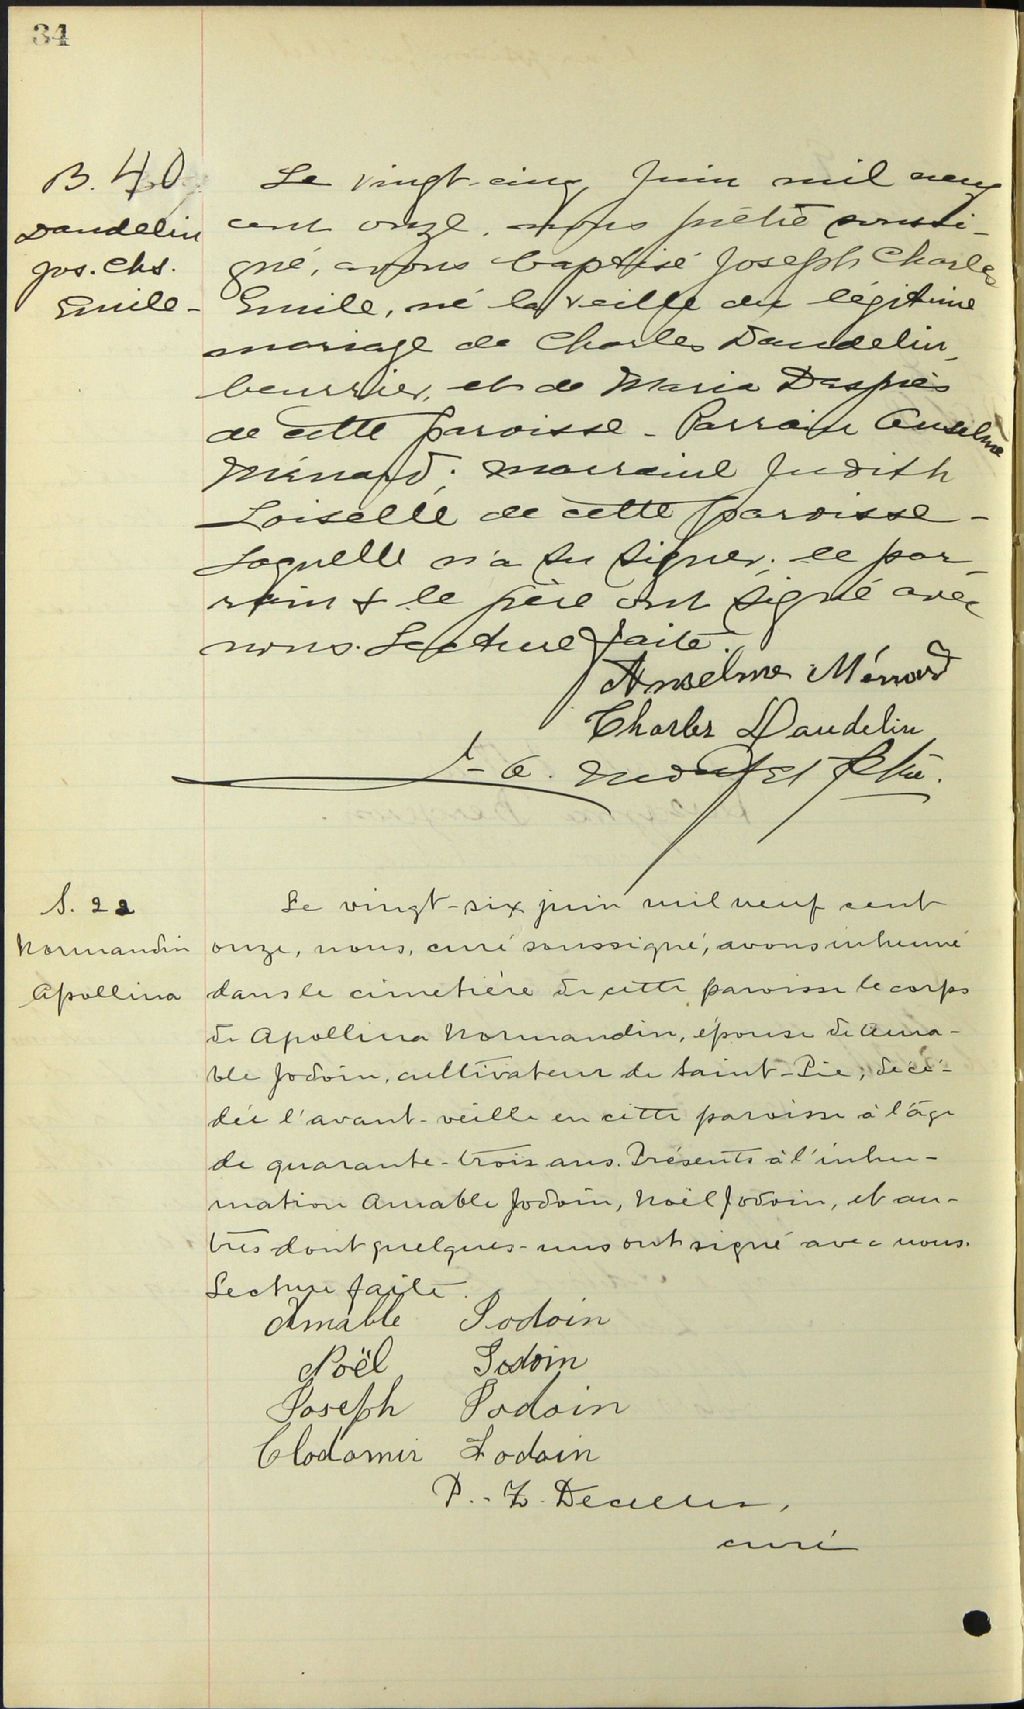 34
B. 40
Daudelin
Jos. Chs.
Emile -
Le vingt-cinq Juin mil neuf
cent onze, nous prêtre soussi-
gné, avons baptisé Joseph Charles
Emile, né la veille du légitime
mariage de Charles Daudelin,
beurrier, et de Maria Desprès
de cette paroisse - Parrain Anselme
Ménard; marraine Judith
Loiselle de cette paroisse -
Laquelle n'a su signer; le par-
rain & le père ont signé avec
nous. Lecture faite.
Anselme Ménard
Charles Daudelin
Ptre.
S. 22
Normandin
Apollina
Le vingt-six juin mil neuf cent
onze, nous, curé soussigné, avons inhumé
dans le cimetière de cette paroisse le corps
de Apollina Normandin, épouse de Ama-
ble Jodoin, cultivateur de Saint-Pie, décé-
dée l'avant-veille en cette paroisse à l'âge
de quarante-trois ans. Présents à l'inhu-
mation Amable Jodoin, Noël Jodoin, et au-
tres dont quelques-uns ont signé avec nous.
Lecture faite.
Amable Jodoin
Noël Jodoin
Joseph Jodoin
Clodomir Jodoin
P.-Z. Decelles,
curé